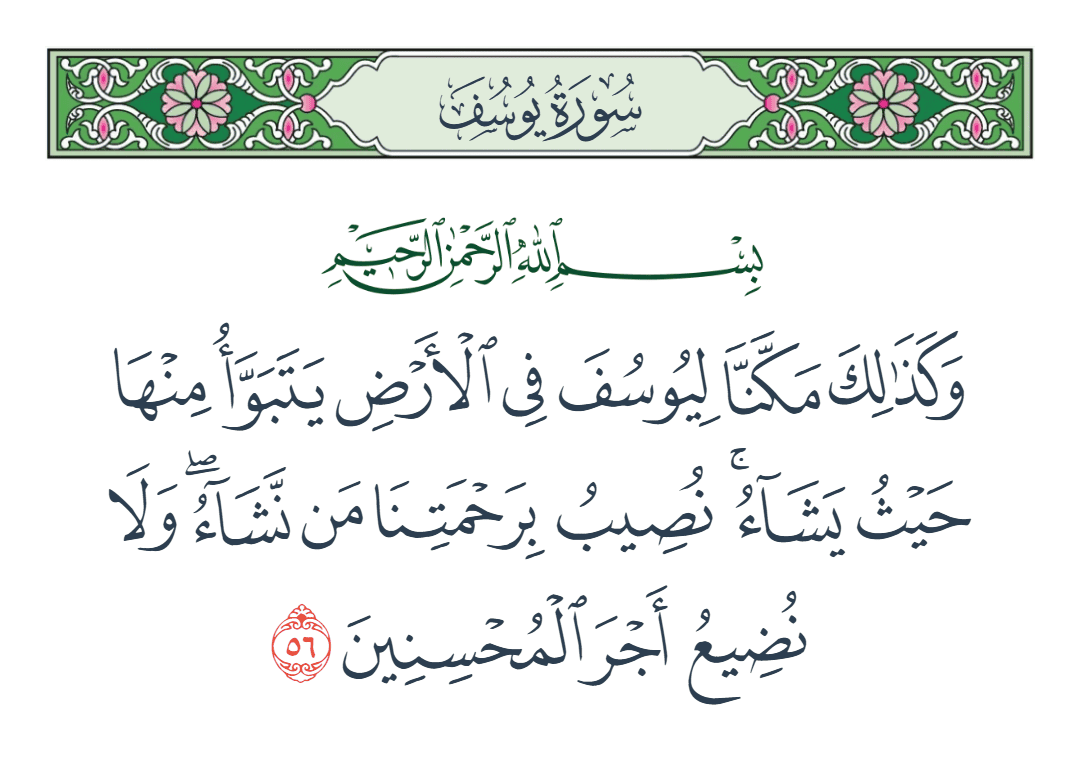 سُورَةُ يُوسُفَ
بِسْمِ ٱللَّهِ ٱلرَّحْمَٰنِ ٱلرَّحِيمِ
وَكَذَٰلِكَ مَكَّنَّا لِيُوسُفَ فِى ٱلْأَرْضِ يَتَبَوَّأُ مِنْهَا
حَيْثُ يَشَآءُ ۚ نُصِيبُ بِرَحْمَتِنَا مَن نَّشَآءُ ۖ وَلَا
نُضِيعُ أَجْرَ ٱلْمُحْسِنِينَ ٥٦